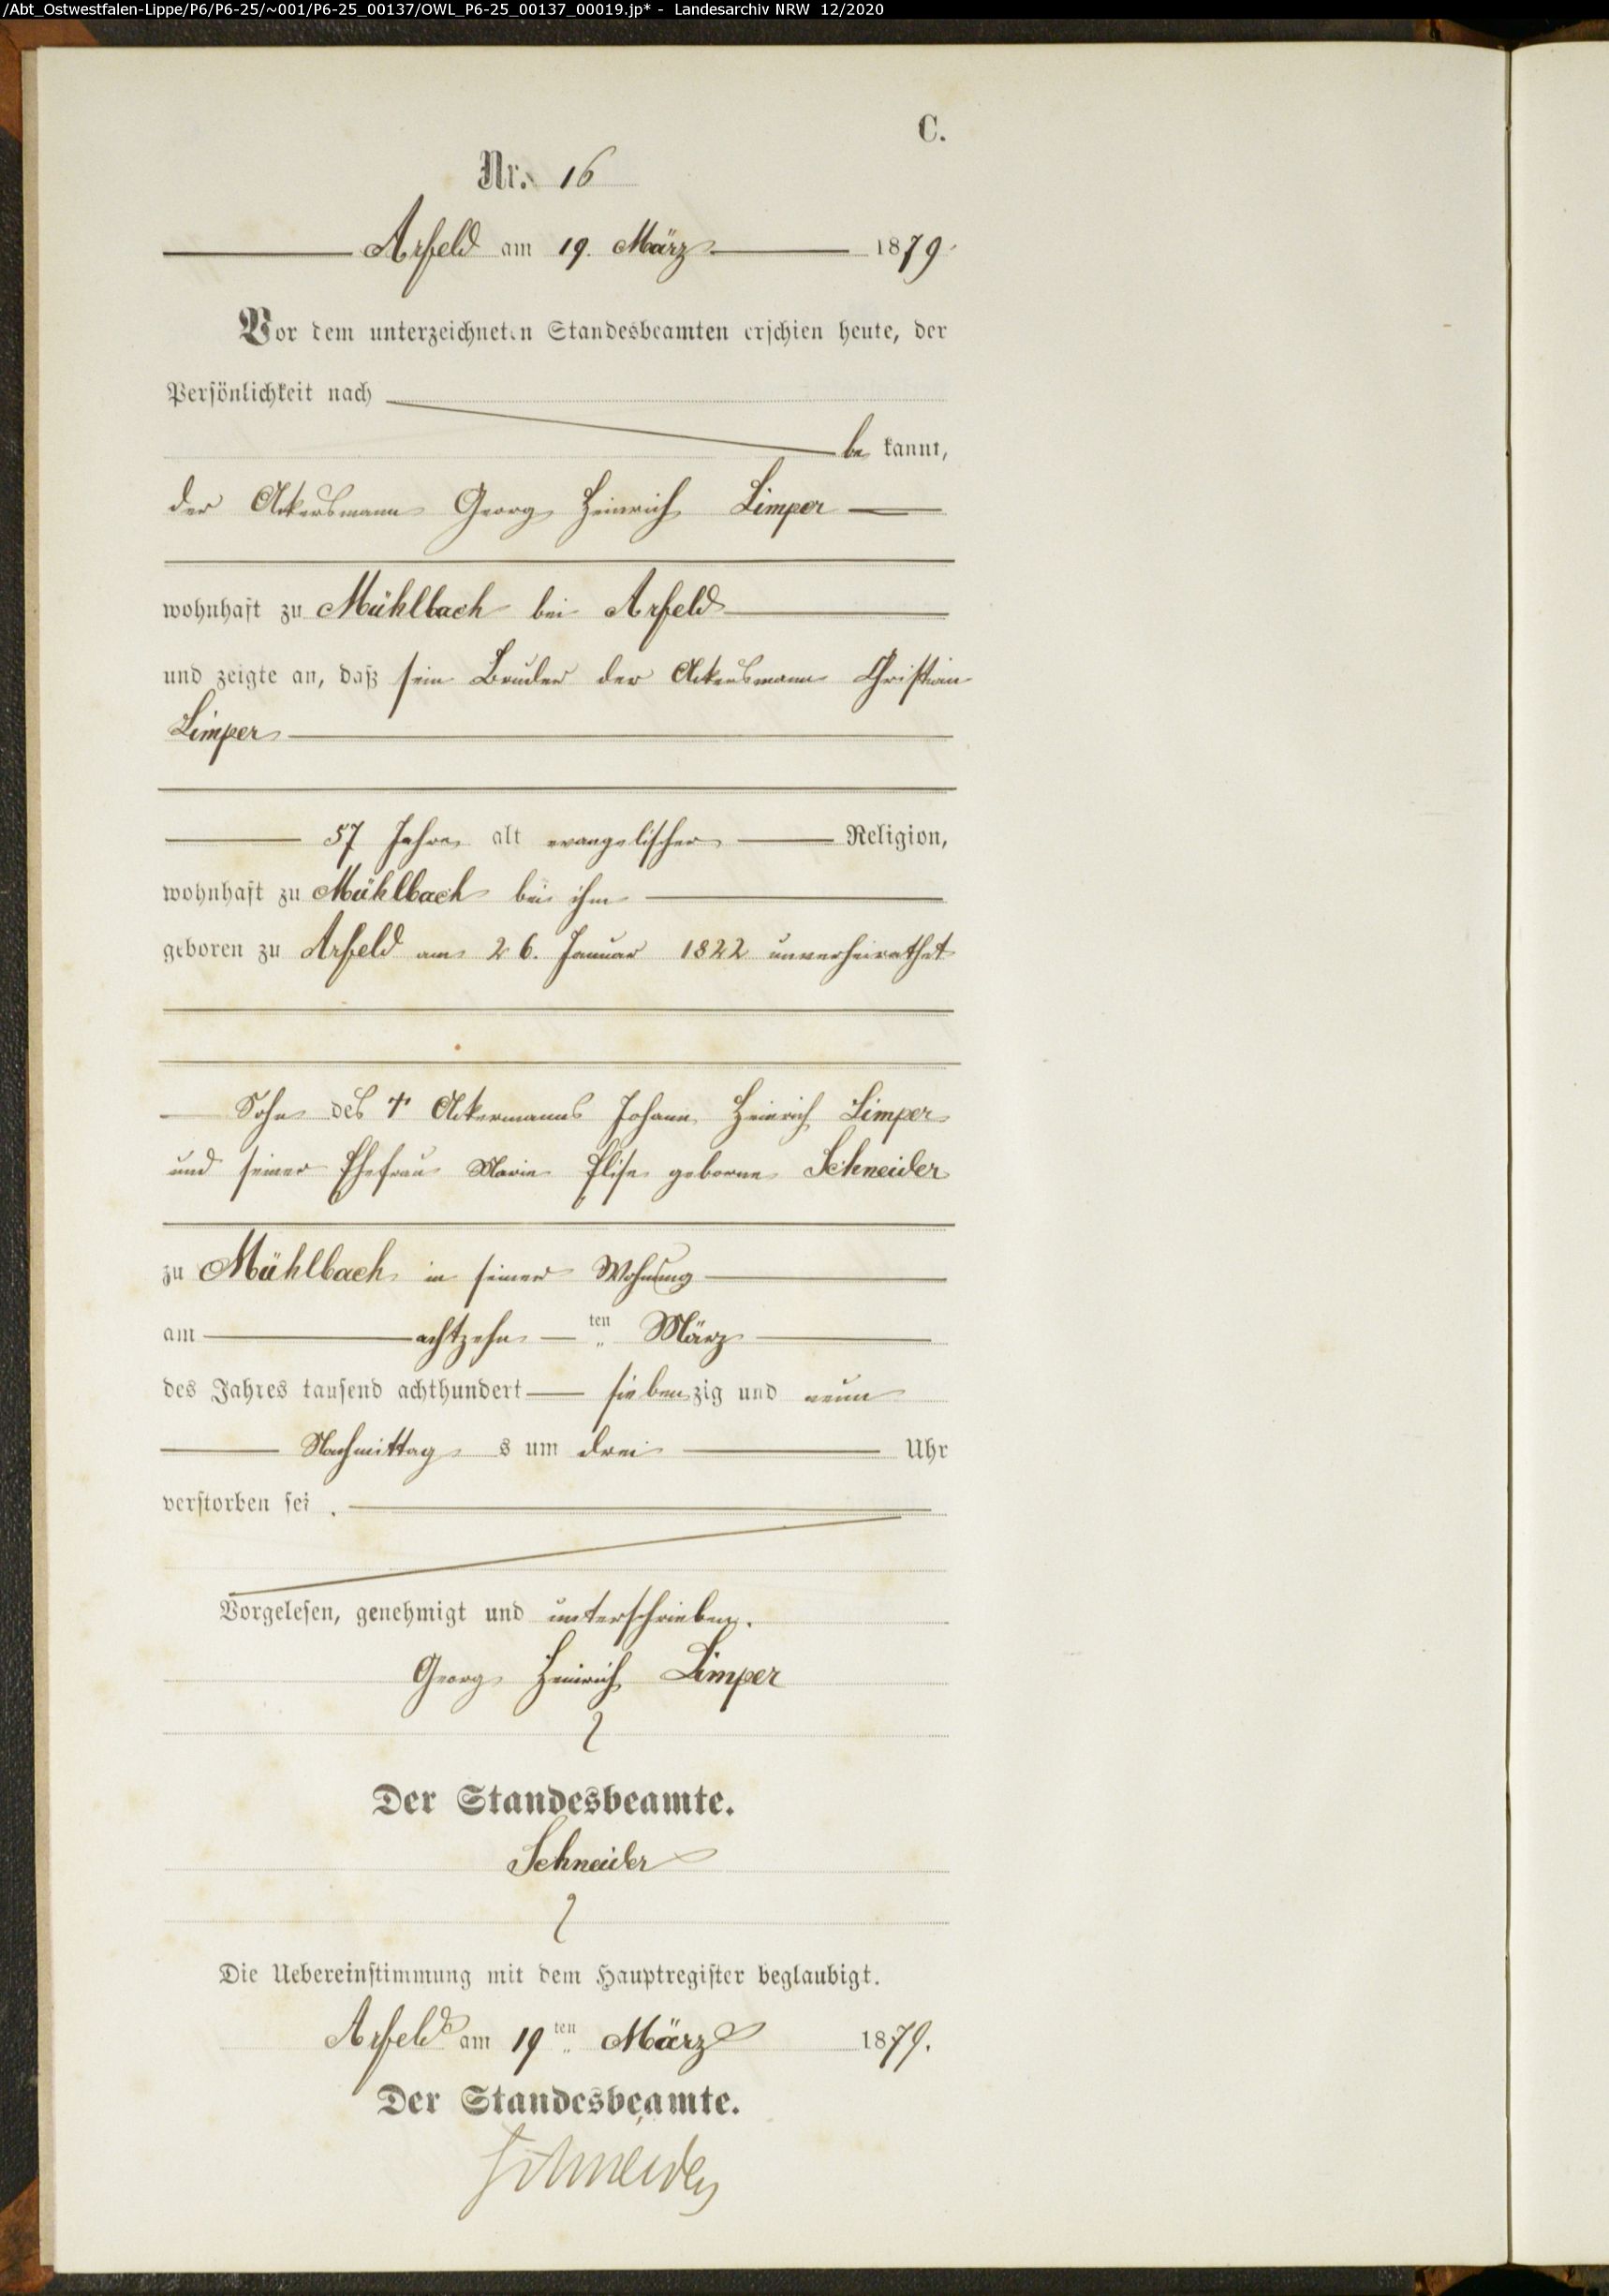 /Abt_Ostwestfalen-Lippe/P6/P6-25/~001/P6-25_00137/OWL_P6-25_00137_00019.jp* - Landesarchiv NRW 12/2020
C.
Nr. 16
Arfeld am 19. März 1879.
Vor dem unterzeichneten Standesbeamten erschien heute, der
Persönlichkeit nach
be kannt,
der Ackersmann Georg Heinrich Limper
wohnhaft zu Mühlbach bei Arfeld
und zeigte an, daß sein Bruder der Ackersmann Christian
Limper
57 Jahre alt evangelischer Religion,
wohnhaft zu Mühlbach bei ihm
geboren zu Arfeld am 26. Januar 1822 unverheirathet
Sohn des † Ackermanns Johann Heinrich Limper
und seiner Ehefrau Marie Elise geborne Schneider
zu Mühlbach in seiner Wohnung
am achtzehn ten März
des Jahres tausend achthundert siebenzig und neun
Nachmittag s um drei Uhr
verstorben sei .
Vorgelesen, genehmigt und unterschrieben.
Georg Heinrich Limper
Der Standesbeamte.
Schneider
Die Uebereinstimmung mit dem Hauptregister beglaubigt.
Arfeld am 19ten März 1879.
Der Standesbeamte.
Schneider